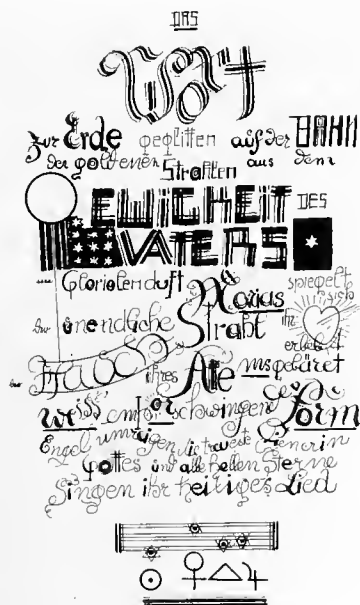 DAS
Wort
zur Erde geglitten auf der BAHN
der goldenen Strahlen aus dem
EWIGHEIT DES
VATERS
Glorienduft Marias spiegelt sich
der unendliche Strahl
Hauch ihres Atems gebäret
weiss empor schwingend Form
Engel umreigen die treueste Dienerin
Gottes und alle hellen Sterne
Singen ihr heiliges Lied